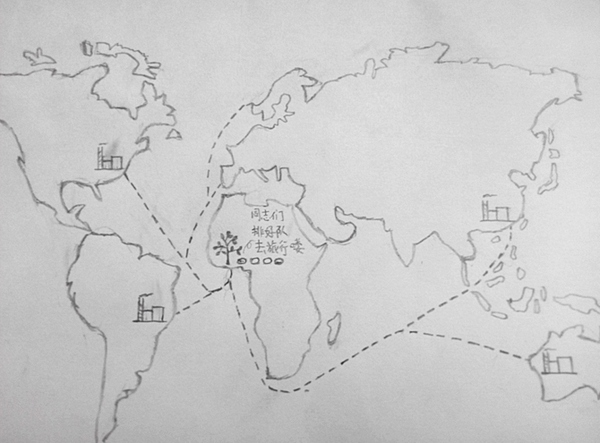 同志们
排好队
去旅行喽